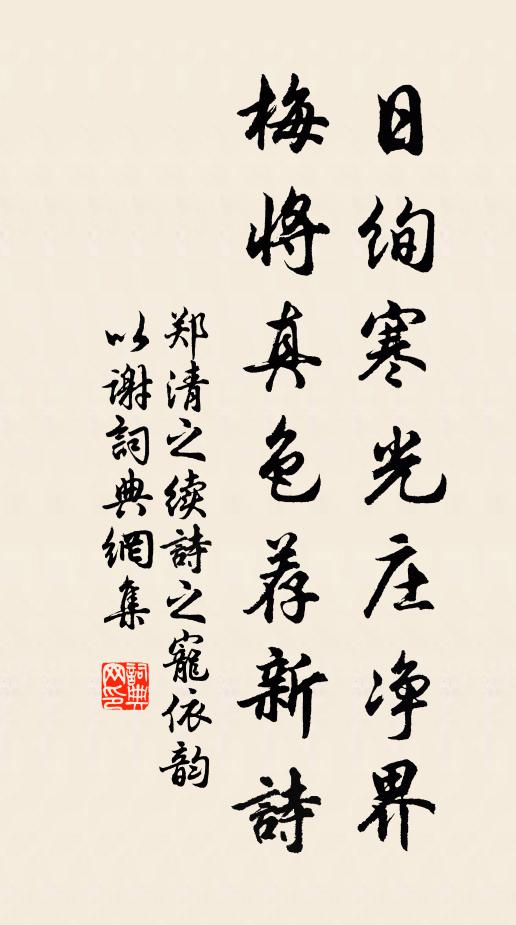 日绚寒光庄净界
梅将真色荐新詩
郑清之续詩之寵依韵
以谢詞典網集
詞典網印